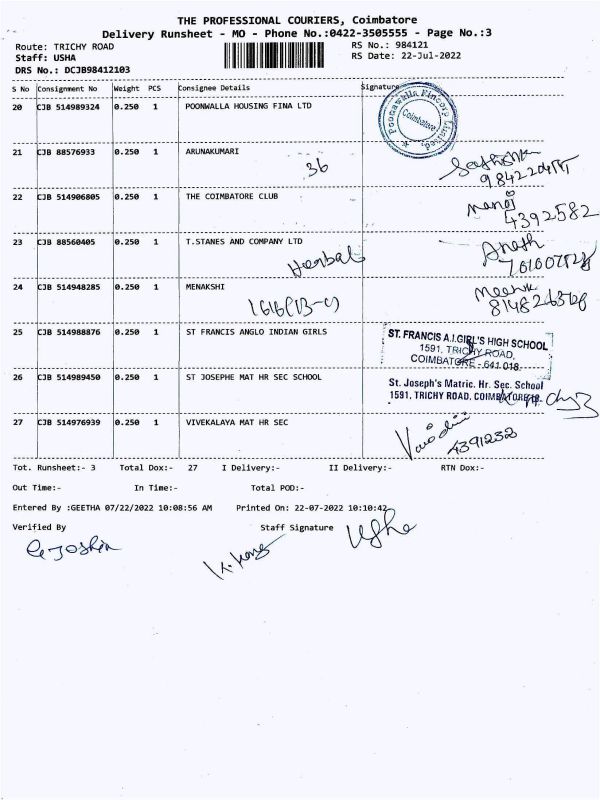 THE PROFESSIONAL COURIERS, Coimbatore
Delivery Runsheet - MO - Phone No.:0422-3505555 - Page No.:3
Route: TRICHY ROAD
RS No.: 984121
Staff: USHA
RS Date: 22-Jul-2022
DRS No.: DCJB98412103
S No Consignment No Weight PCS Consignee Details Signature
20 CJB 514989324 0.250 1 POONWALLA HOUSING FINA LTD
Poonawalla Fincorp Limited
Coimbatore
21 CJB 88576933 0.250 1 ARUNAKUMARI
36
22 CJB 514906805 0.250 1 THE COIMBATORE CLUB
Manoj
4392582
23 CJB 88560405 0.250 1 T.STANES AND COMPANY LTD
Herbal
24 CJB 514948285 0.250 1 MENAKSHI
1616(B-c)
25 CJB 514988876 0.250 1 ST FRANCIS ANGLO INDIAN GIRLS
ST. FRANCIS A.I.GIRL'S HIGH SCHOOL
1591, TRICHY ROAD,
COIMBATORE - 641 018.
26 CJB 514989450 0.250 1 ST JOSEPHE MAT HR SEC SCHOOL
St. Joseph's Matric. Hr. Sec. School
1591, TRICHY ROAD, COIMBATORE-18.
27 CJB 514976939 0.250 1 VIVEKALAYA MAT HR SEC
4391232
Tot. Runsheet:- 3 Total Dox:- 27 I Delivery:- II Delivery:- RTN Dox:-
Out Time:- In Time:- Total POD:-
Entered By :GEETHA 07/22/2022 10:08:56 AM Printed On: 22-07-2022 10:10:42
Verified By Staff Signature
Usha